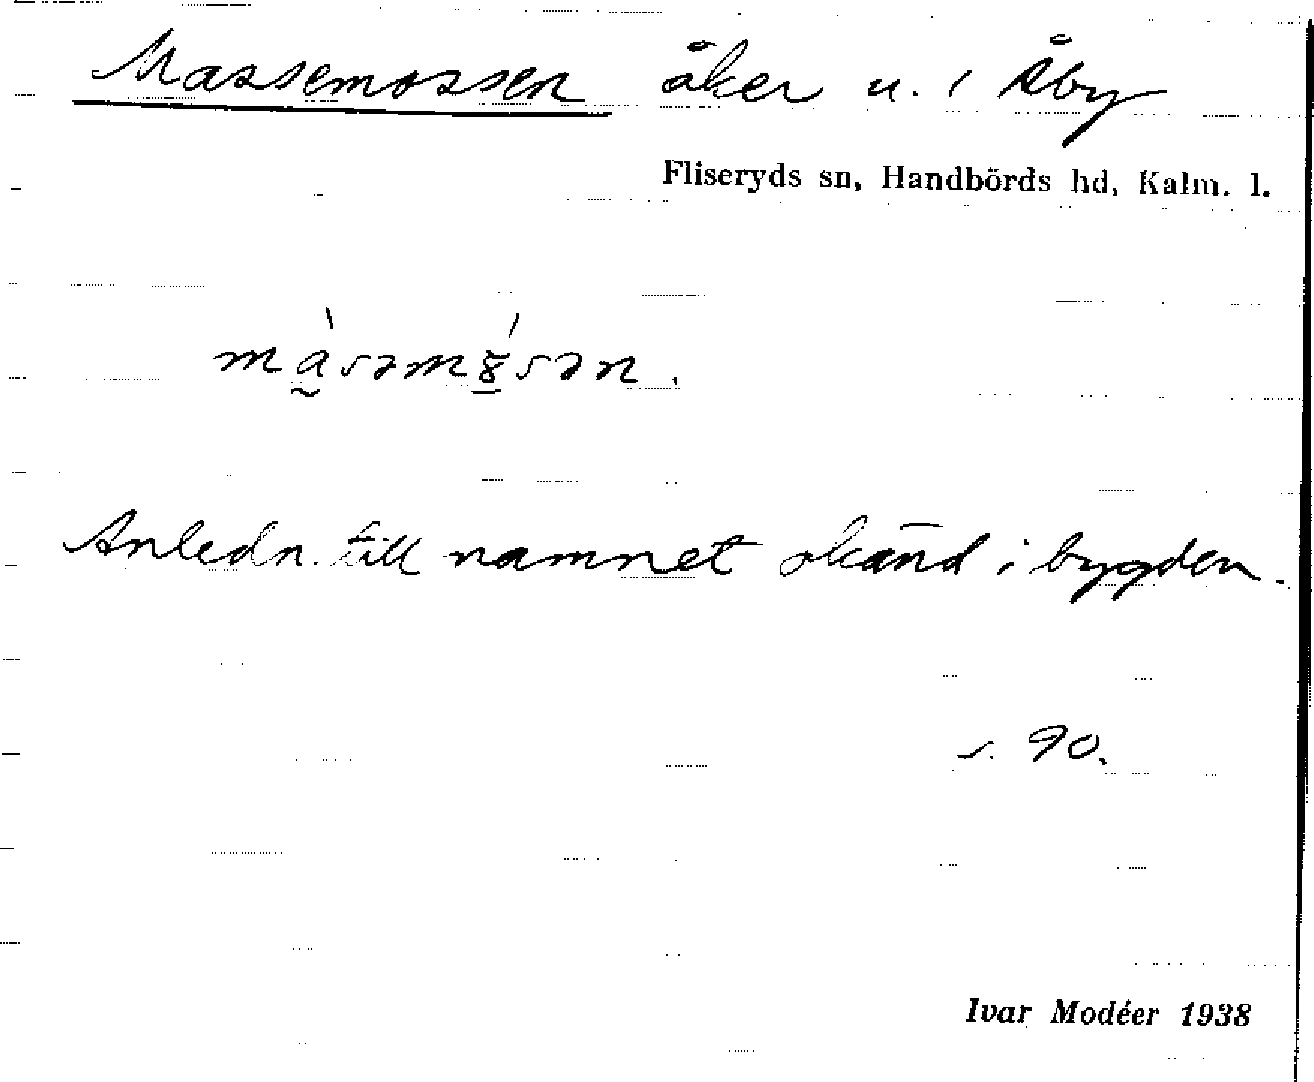 Massemossen åker u. 1 Åby
Fliseryds sn, Handbörds hd, Kalm. l.
màsəmósən.
Anledn. till namnet okänd i bygden.
s. 90.
Ivar Modéer 1938